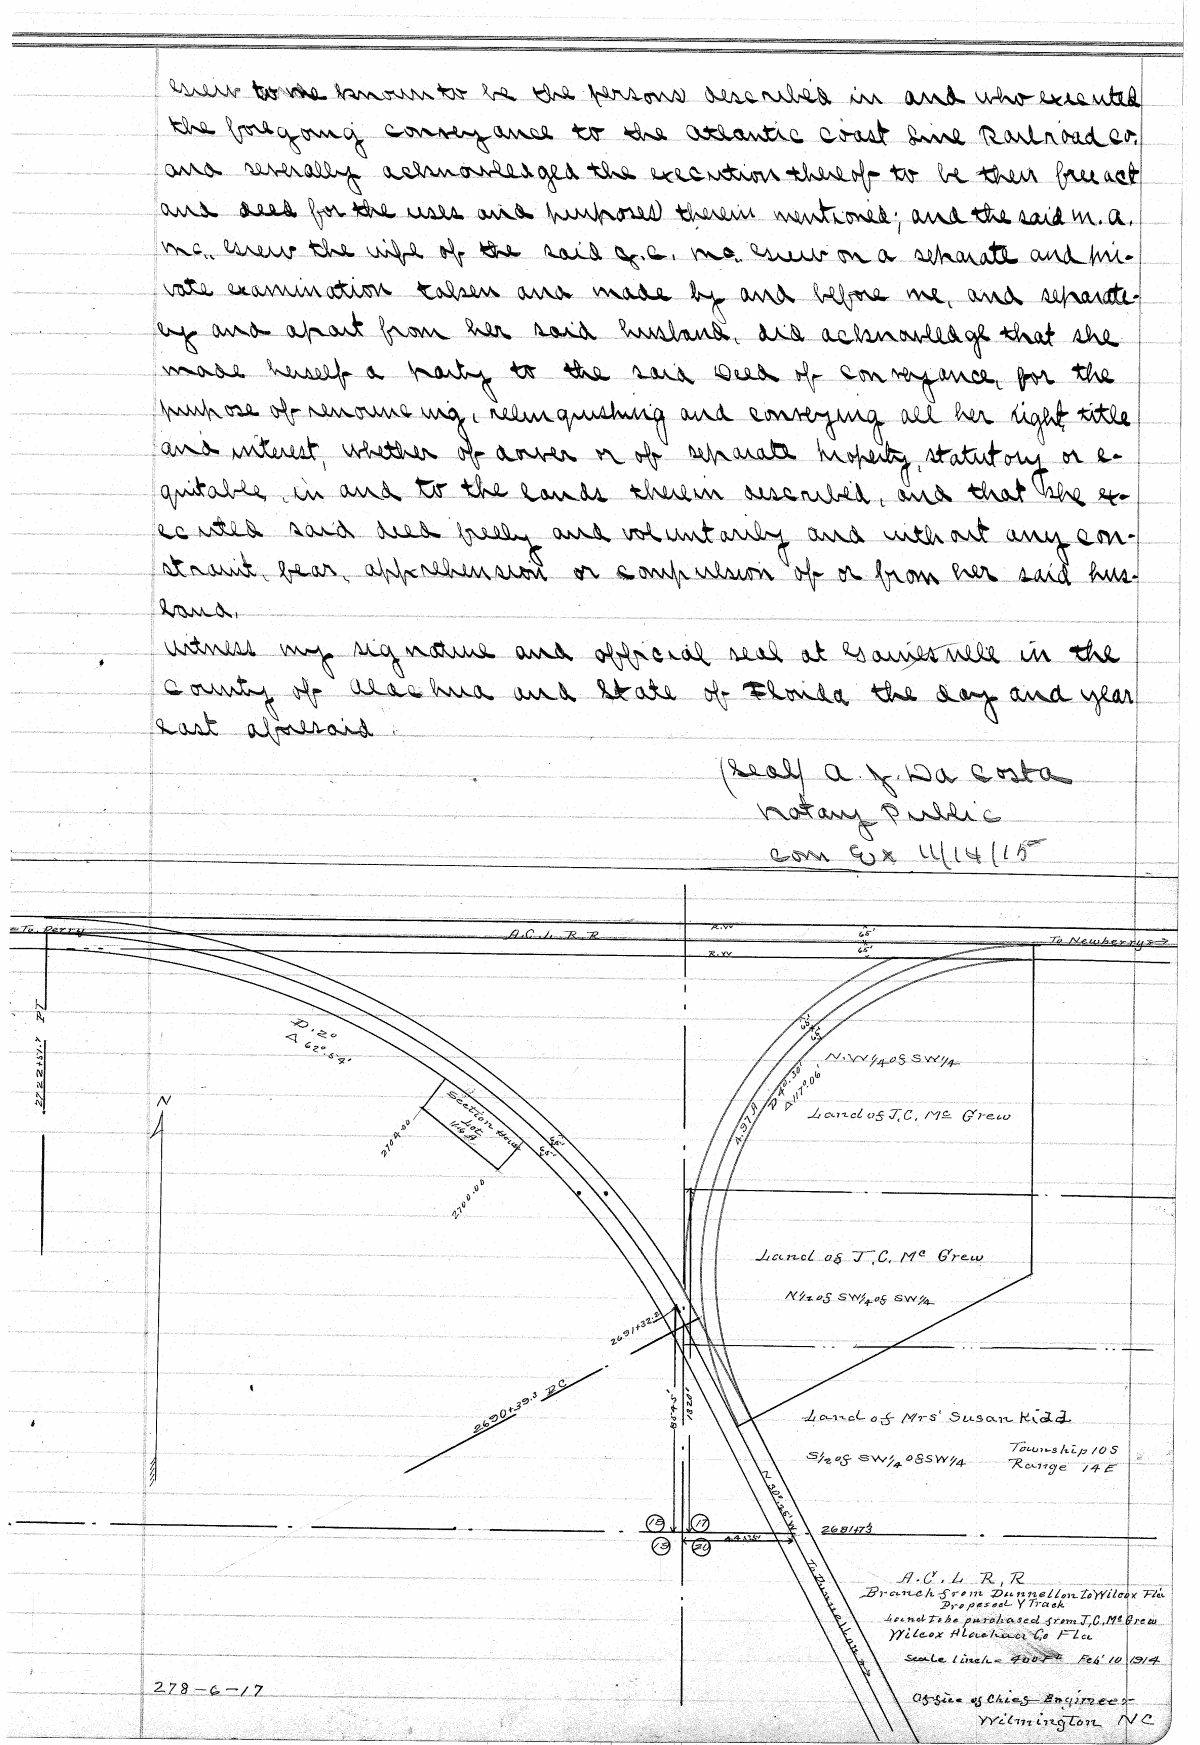 Grew to me known to be the persons described in and who executed
the foregoing conveyance to the Atlantic Coast Line Railroad Co.
and severally acknowledged the execution thereof to be their free act
and deed for the uses and purposes therein mentioned; and the said M. A.
Mc. Grew the wife of the said J. C. Mc. Grew on a separate and pri-
vate examination taken and made by and before me, and separate-
ly and apart from her said husband, did acknowledge that she
made herself a party to the said Deed of conveyance, for the
purpose of renouncing, relinquishing and conveying all her right, title
and interest, whether of dower or of separate property, statutory or e-
quitable, in and to the lands therein described, and that she ex-
ecuted said deed freely and voluntarily and without any con-
straint, fear, apprehension or compulsion of or from her said hus-
band.
Witness my signature and official seal at Gainesville in the
County of Alachua and State of Florida the day and year
last aforesaid.
(Seal) A. J. Da Costa
Notary Public
Com Ex 11/14/15
To Perry
A.C.L. R.R
R.W
65'
65'
R.W
To Newberry
2722+51.7 PT
D. 2°
Δ 62°.54'
N
Section House
Lot
1.16 A
2704.00
2700.00
65'
65'
65'
65'
N.W 1/4 of SW 1/4
D 4°.30'
Δ 117°.06'
4.97 A
Land of J.C. Mc Grew
Land of J.C. Mc Grew
N 1/2 of SW 1/4 of SW 1/4
2691+32.2
2690+39.3 PC
854.5'
1820'
Land of Mrs Susan Kidd
S 1/2 of SW 1/4 of SW 1/4
Township 10 S
Range 14 E
N 30°.26' W
18
17
19
20
2681+73
To Dunnellon
A.C.L R.R
Branch from Dunnellon to Wilcox Fla
Proposed Y Track
Land to be purchased from J.C. Mc Grew
Wilcox Alachua Co Fla
Scale 1 inch = 400 Ft Feb' 10 1914
Office of Chief Engineer
Wilmington NC
278-6-17